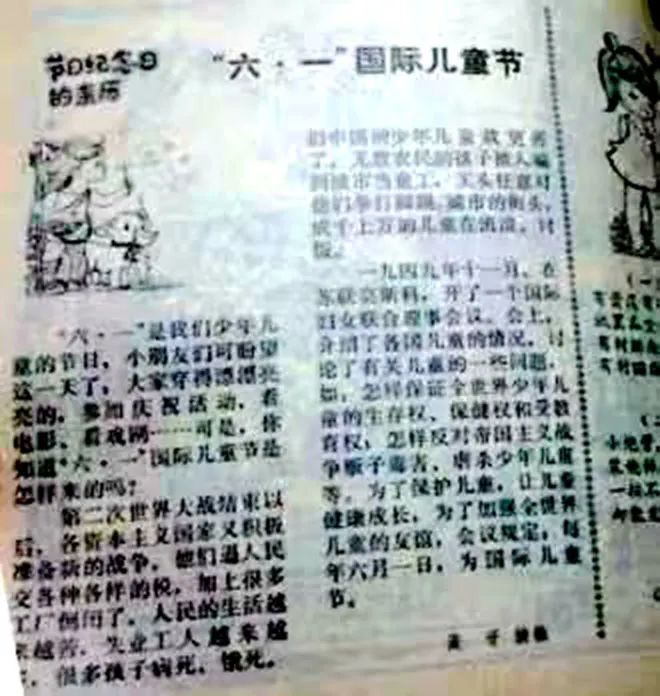 节日纪念日
的来历
“六·一”国际儿童节
“六·一”是我们少年儿
童的节日，小朋友们可盼望
这一天了，大家穿得漂漂亮
亮的，参加庆祝活动，看
电影、看戏剧……可是，你
知道“六·一”国际儿童节是
怎样来的吗？
第二次世界大战结束以
后，各资本主义国家又积极
准备新的战争，他们逼人民
交各种各样的税，加上很多
工厂倒闭了，人民的生活越
来越苦，失业工人越来越
，很多孩子病死，饿死。
中国的少年儿童就更苦
了，无数农民的孩子被人骗
到城市当童工，工头任意对
他们拳打脚踢，城市的街头，
成千上万的儿童在流浪、讨
饭。
一九四九年十一月，在
苏联莫斯科，开了一个国际
妇女联合理事会议。会上，
介绍了各国儿童的情况，讨
论了有关儿童的一些问题，
如，怎样保证全世界少年儿
童的生存权、保健权和受教
育权；怎样反对帝国主义战
争贩子毒害、虐杀少年儿童
等。为了保护儿童，让儿童
健康成长，为了加强全世界
儿童的友谊，会议规定：每
年六月一日，为国际儿童
节。